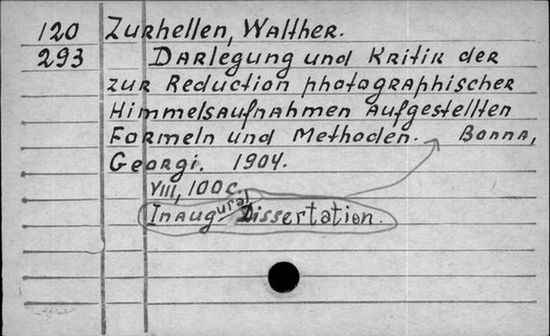 120 Zurhellen, Walther.
293 Darlegung und Kritik der
zur Reduction photographischer
Himmelsaufnahmen aufgestellten
Formeln und Methoden. Bonna,
Georgi. 1904.
VIII, 100 c.
Inaugural Dissertation.